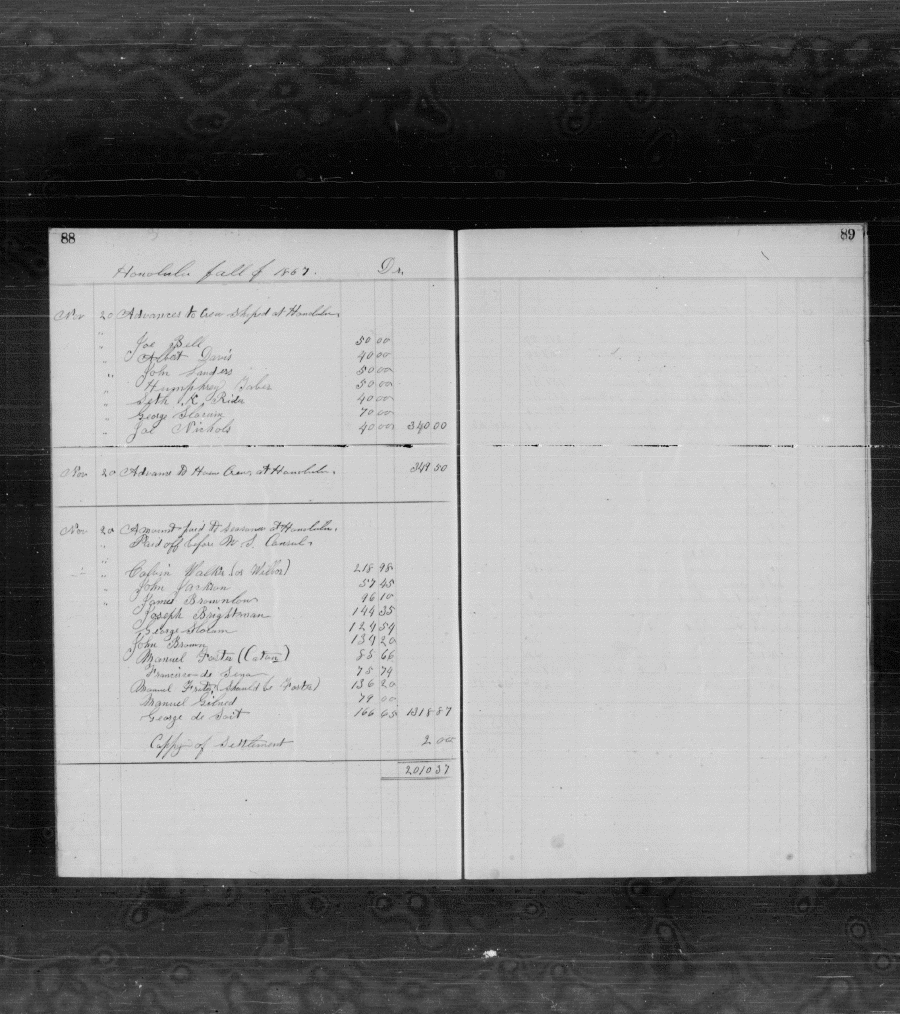 88
Honolulu fall of 1867. Dr.
Nov 20 Advances to Crew Shiped at Honolulu.
" Joe Bell 50 00
" Albert Davis 40 00
" John Sanders 50 00
" Humphrey Baker 50 00
" Seth K. Rider 40 00
" George Slocum 70 00
" Joe Nichols 40 00 340 00
Nov 20 Advance to Home Crew, at Honolulu. 349.50
Nov 20 Amount paid to seamen at Honolulu,
" Paid off before U. S. Consul,
" Calvin Walker (or Wilbor) 218 98
" John Jackson 57 45
" James Brownlow 96 10
Joseph Brightman 144 35
George Slocum 124 54
John Brown 134 20
Manuel Foster (Caton) 85 66
Francisco de Sena 78 74
Manuel Frates (Should be Foster) 136 20
Manuel 79 00
George de 166 65 1318 87
Copying of Settlement 2 00
2010 37
89